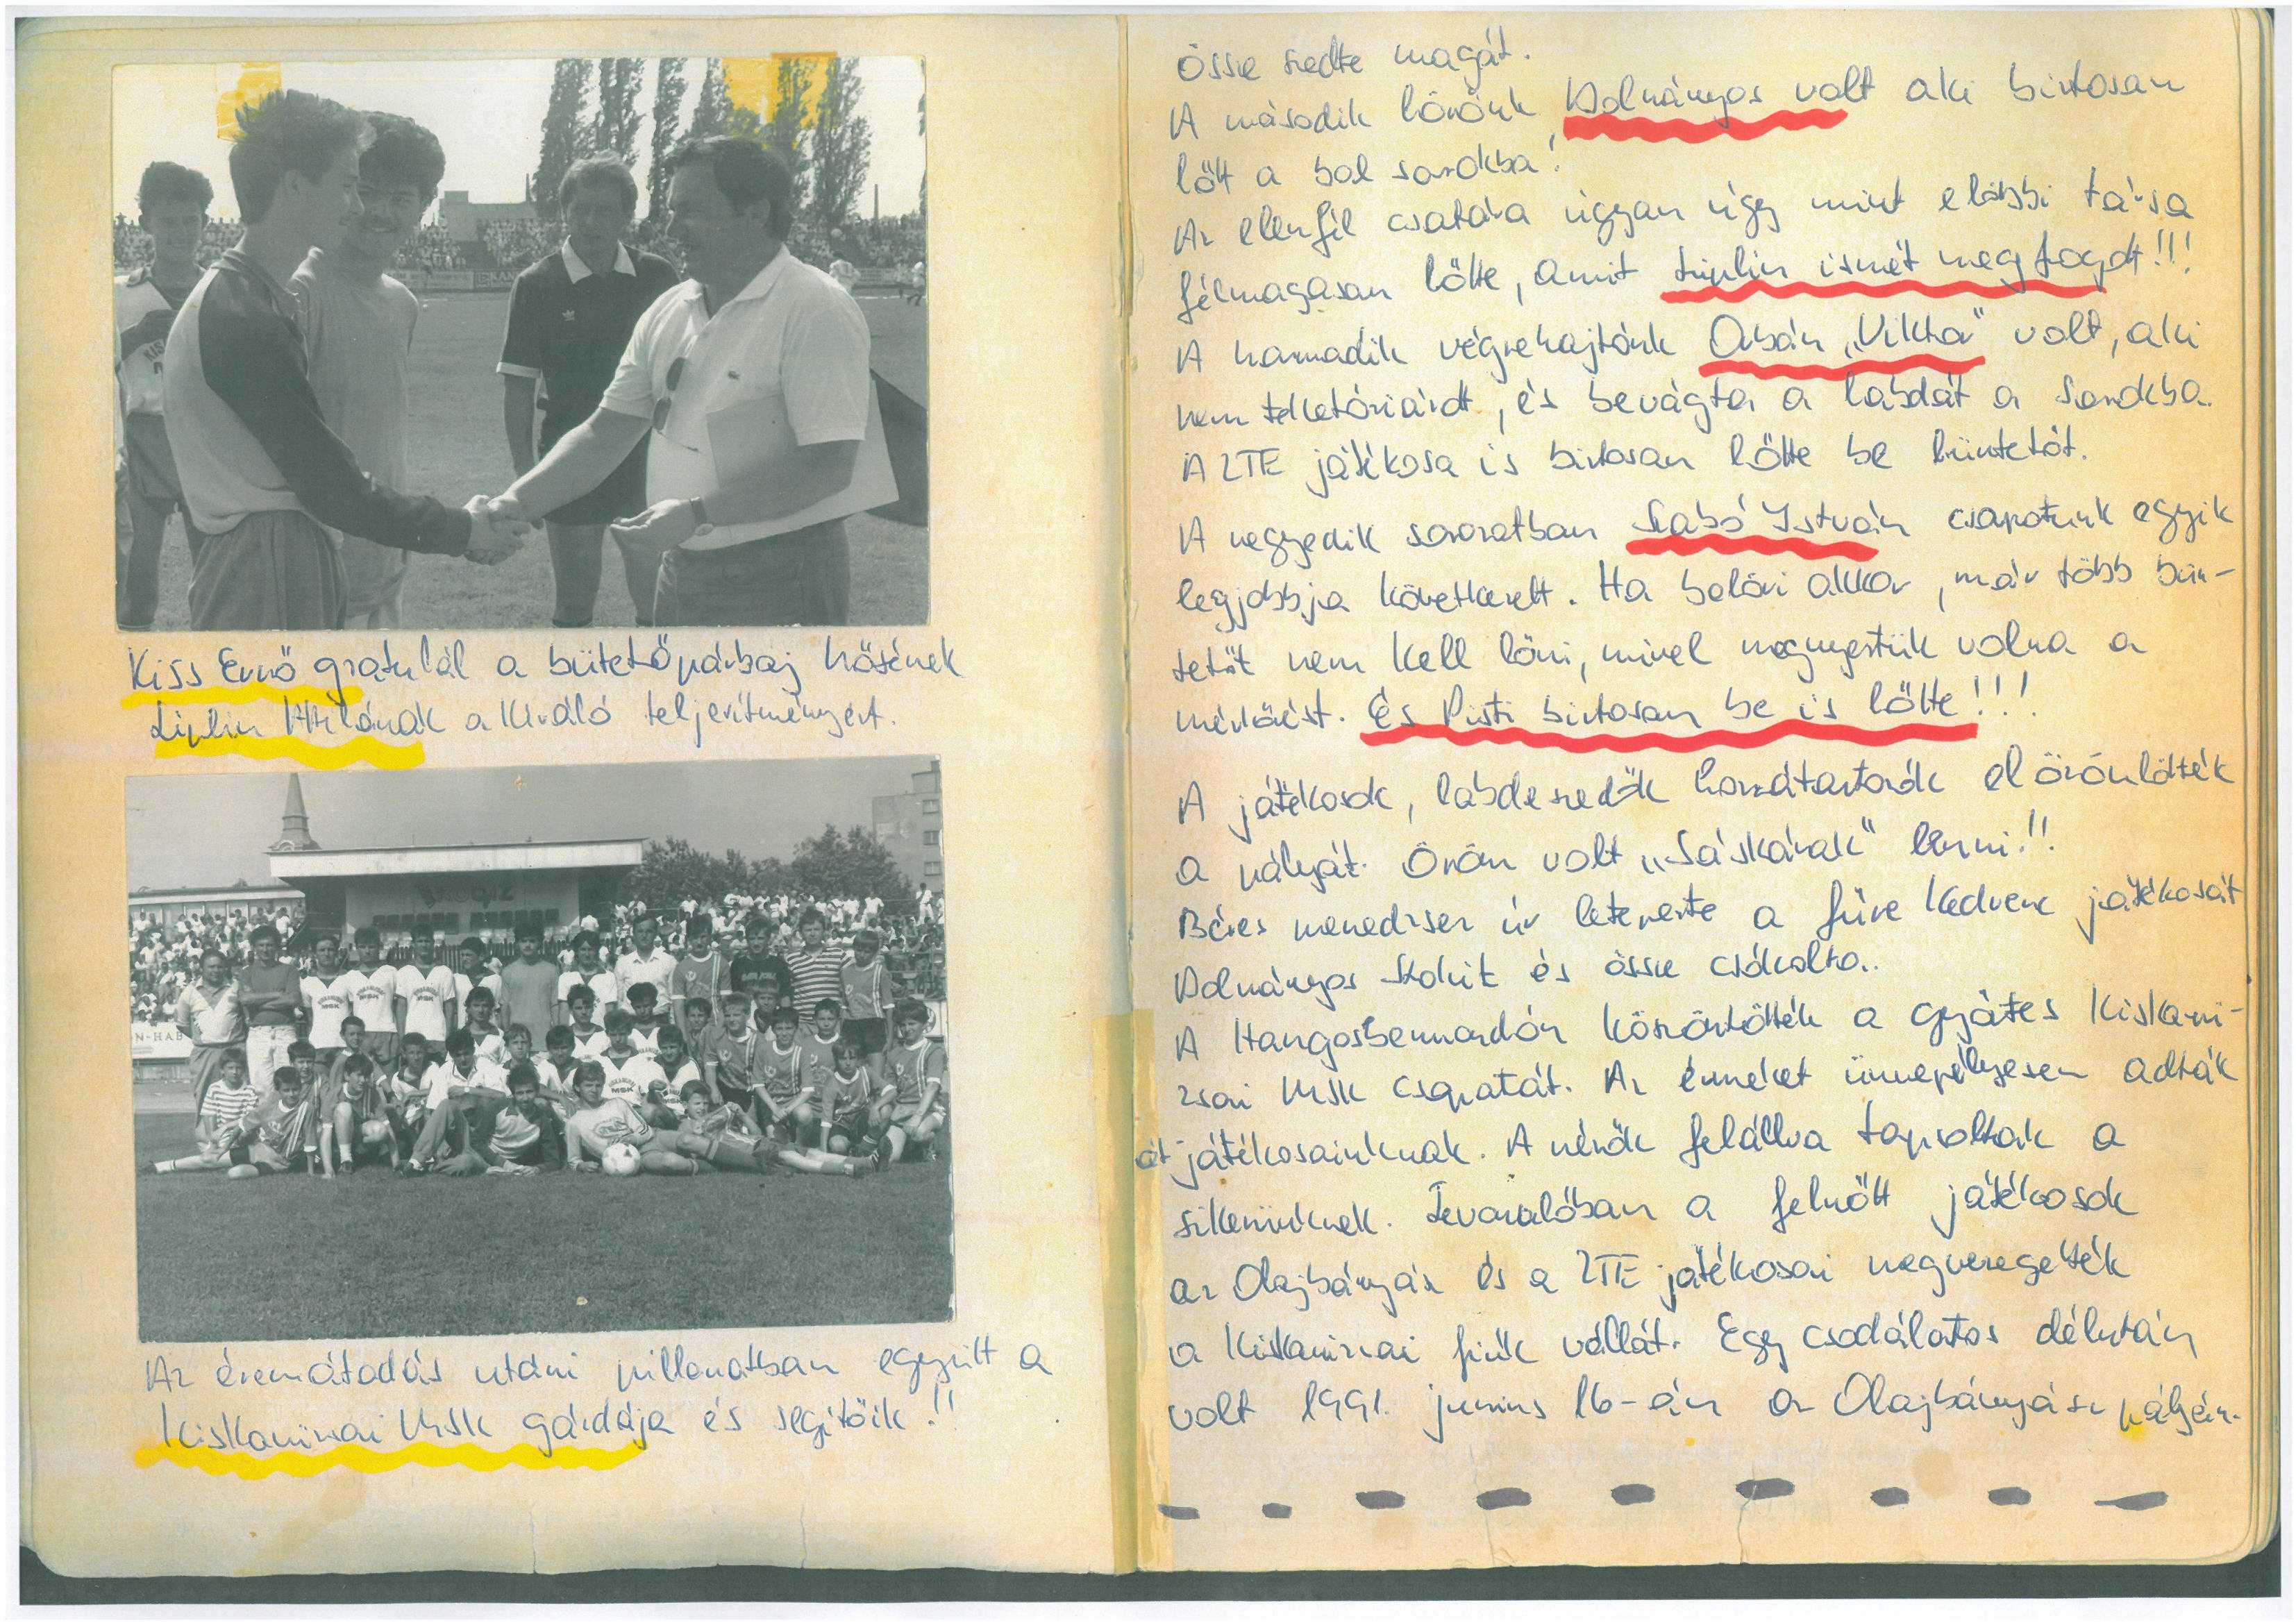 Kiss Ernő gratulál a bütetőpárbaj hősének
Liplin Attilának a kiváló teljesítményért.
Az éremátadás utáni pillanatban együtt a
Kiskanizsai MSK gárdája és segítőik!!
össze szedte magát.
A második lövőnk, Dolmányos volt aki biztosan
lőtt a bal sarokba!
Az ellenfél csatára úgyan úgy mint előbbi társa
félmagasan lőtte, amit Liplin ismét megfogott!!!
A harmadik végrehajtónk Orbán „Vikta" volt, aki
nem teketóriázott, és bevágta a labdát a sarokba.
A ZTE játékosa is biztosan lőtte be büntetőt.
A negyedik sorozatban Szabó István csapatunk egyik
legjobbja következett. Ha belövi akkor, már több bün-
tetőt nem kell lőni, mivel megnyertük volna a
mérkőzést. És Pisti biztosan be is lőtte!!!
A játékosok, labdaszedők hozzátartozók elözönlötték
a pályát. Öröm volt „Sáskának" lenni!!
Béres menedzser úr leteperte a fűre kedvenc játékosát
Dolmányos Stokit és össze csókolta..
A Hangosbemondón köszöntötték a győztes Kiskani-
zsai MSK csapatát. Az érmeket ünnepélyesen adták
át játékosainknak. A nézők felállva tapsoltak a
sikerünknek. Levonulóban a felnőtt játékosok
az Olajbányász és a ZTE játékosai megveregették
a Kiskanizsai fiúk vállát. Egy csodálatos délután
volt 1991. junius 16-án az Olajbányász pályán.